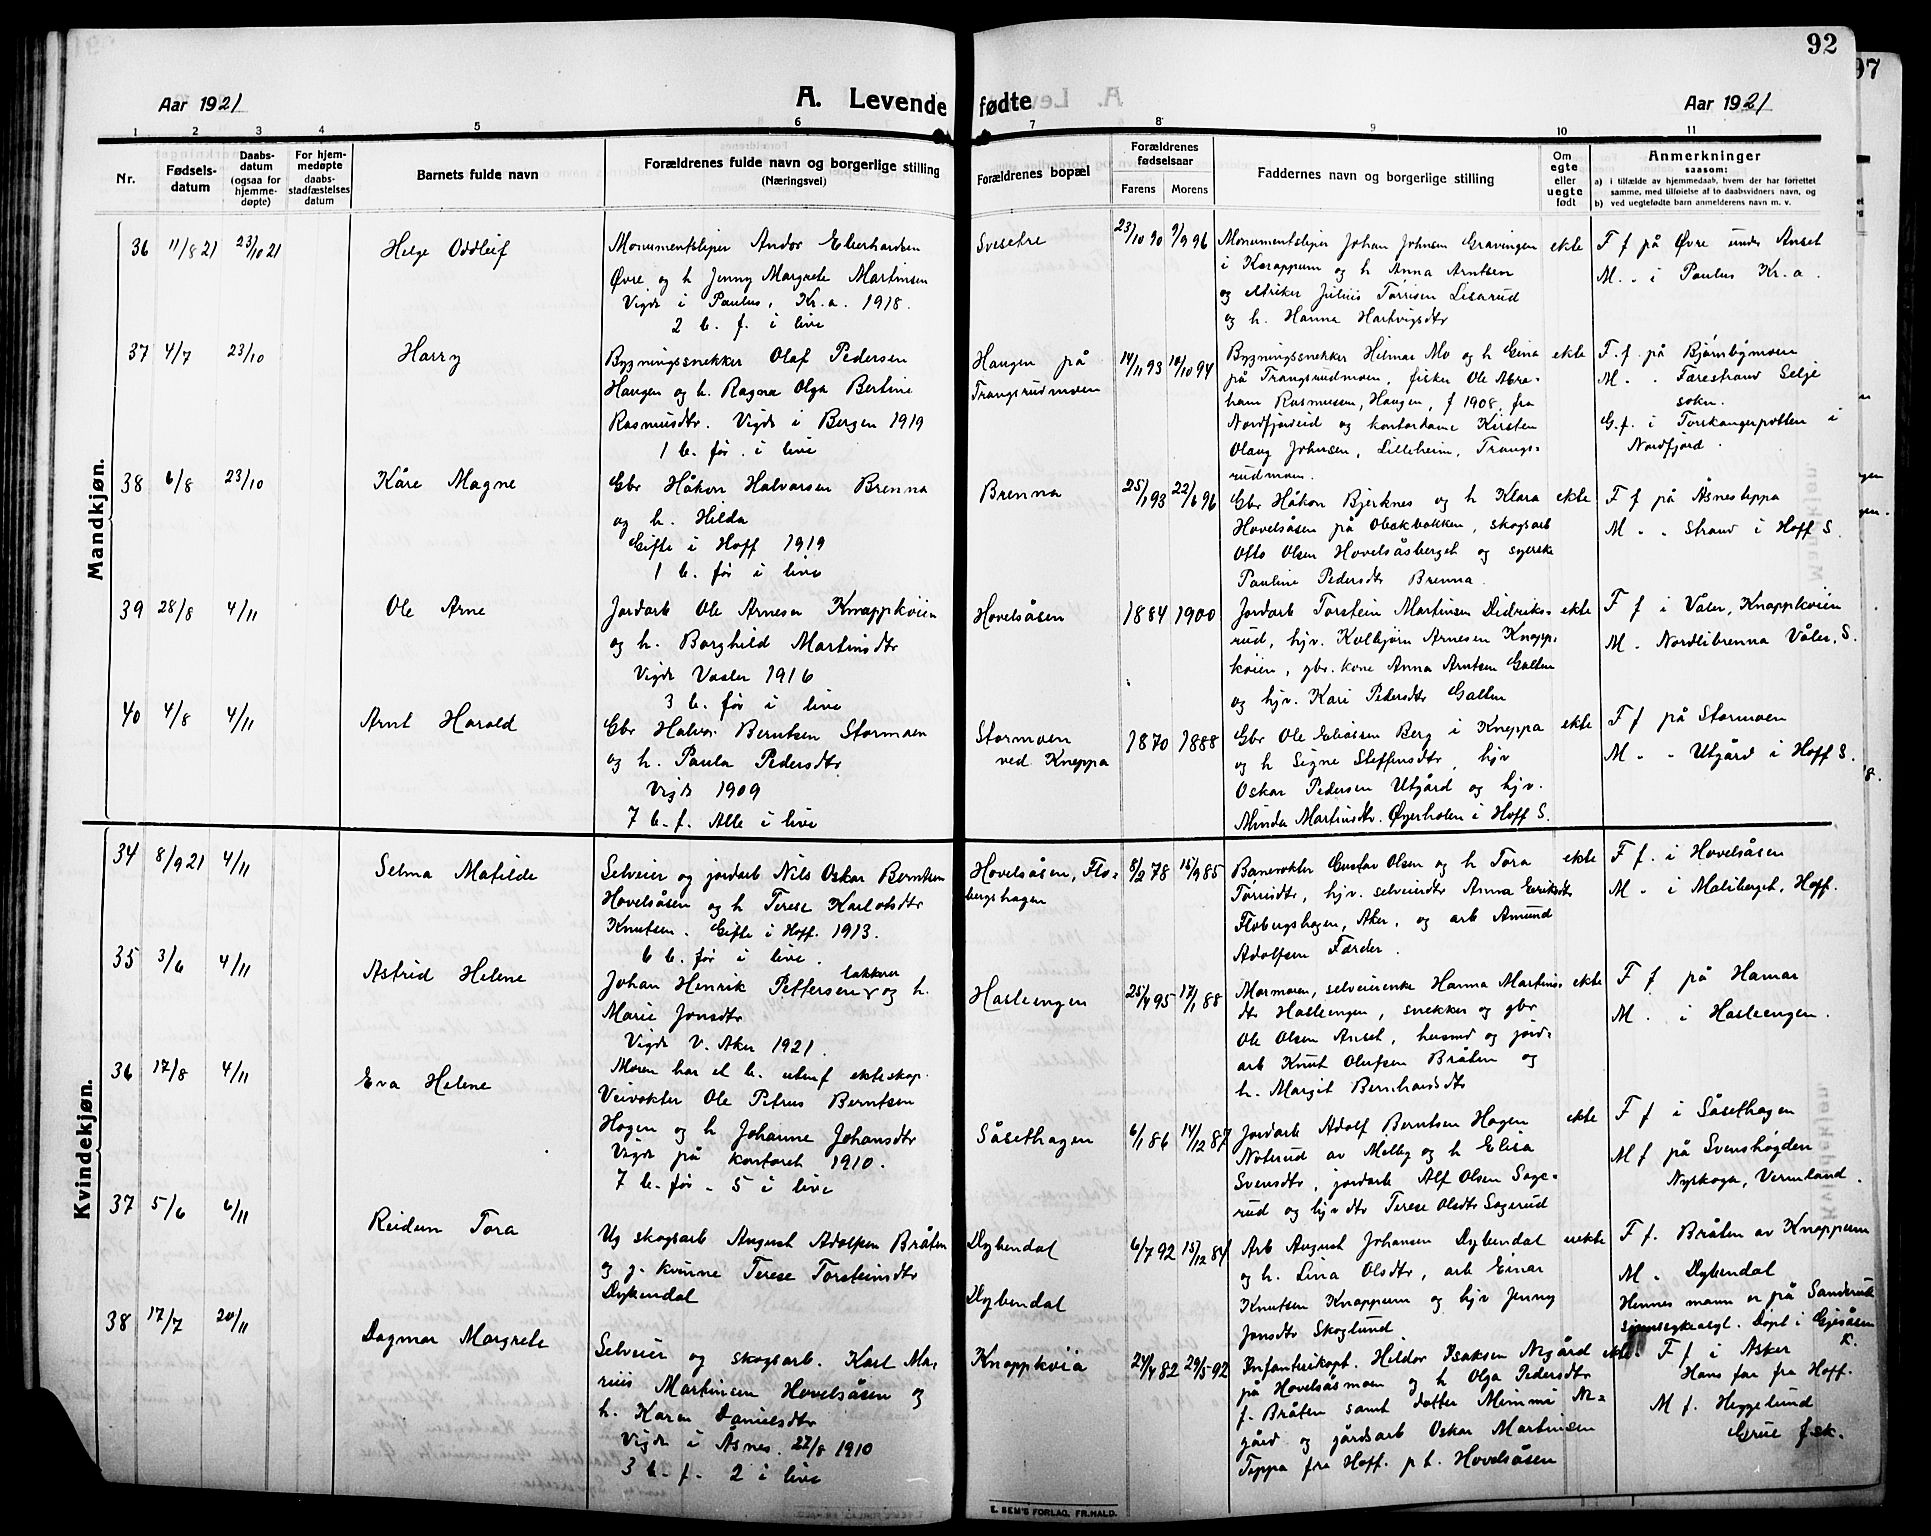 92
97
Aar 1921
A. Levende fødte
Aar 1921
1 2 3 4 5 6 7 8 9 10 11
Nr.
Fødsels-
datum
Daabs-
datum
(ogsaa for
hjemme-
døpte)
For hjem-
medøpte
daabs-
stadfæstelses
datum
Barnets fulde navn
Forældrenes fulde navn og borgerlige stilling
(Næringsvei)
Forældrenes bopæl
Forældrenes
fødselsaar
Farens Morens
Faddernes navn og borgerlige stilling
Om
egte
eller
uegte
født
Anmerkninger
saasom:
a) i tilfælde av hjemmedaab, hvem der har forrettet
samme, med tilføielse af to daabsvidners navn, og
b) ved uegtefødte barn anmelderens navn m. v.
Mandkjøn.
36 11/8 21 23/10 21 Helge Oddleif
Monumentsliper Andor Eberhardsen
Øvre og h. Jenny Margrete Martinsen
Vigde i Paulus, Kr.a. 1918.
2 b. f. i live
Svesetre
23/10 90 9/9 96
Monumentsliper Johan Johnsen Gravingen
i Knappum og h Anna Arntsen
og Julius Tørrisen Lisarud
og h. Hanna Hartvigsdtr
ekte
F f på Øvre under Anset
M. . i Paulus Kr. a.
37 4/7 23/10 Harry
Bygningssnekker Olaf Pedersen
Haugen og h. Ragna Olga Bertine
Rasmusdtr. Vigde i Bergen 1919
1 b. før. i live
Haugen på
Trangsrudmoen
14/11 93 10/10 94
Bygningssnekker Hilmar Mo og h Gina
på Trangsrudmoen, fisker Ole Abra-
ham Rasmussen, Haugen, f 1908, fra
Nordfjordeid og kontordame Kirsten
Olaug Johnsen, Lilleheim, Trangs-
rudmoen.
ekte
F. f. på Bjørnbymoen
M. . Færestrand Selje
sokn.
G.f. i i
Nordfjord.
38 6/8 23/10 Kåre Magne
Gbr Håkon Halvorsen Brenna
og h. Hilda
Gifte i Hoff 1919
1 b. før i live
Brenna
25/1 93 22/6 96
Gbr Håkon Bjerknes og h Klara
Hovelsåsen på skogsarb
Otto Olsen Hovelsåsberget og syerske
Pauline Pedersdtr Brenna.
ekte
F f på Åsnesteppa
M . . Strand i Hoff S.
39 28/8 4/11 Ole Arne
Jordarb Ole Arnesen Knappkøien
og h. Borghild Martinsdtr
Vigde Vaaler 1916
3 b. før i live
Hovelsåsen
1884 1900
Jordarb Torstein Martinsen Didriks-
rud, hjv. Kolbjørn Arnesen Knapp-
køien, gbr. kone Anna Arntsen Gallen
og hjv. Kari Pedersdtr Gallen
ekte
F f i Våler, Knappkøien
M. Nordlibrenna Våler, S.
40 4/8 4/11 Arnt Harald
Gbr Halvor Berntsen Stormoen
og h. Paula Pedersdtr
Vigde 1909
7 b. f. Alle i live
Stormoen
ved Kneppa
1870 1888
Gbr Ole Eliassen Berg i Kneppa
og h Signe Steffensdtr, hjv
Oskar Pedersen Utgård og hjv.
Minda Martinsdtr. Øyerholen i Hoff S.
ekte
F f på Stormoen
M . . Utgård i Hoff S.
Kvindekjøn.
34 8/9 21 4/11 Selma Matilde
Selveier og jordarb Nils Oskar Berntsen
Hovelsåsen og h Terese Karlotsdtr
Knutsen. Gifte i Hoff. 1913.
6 b. før i live.
Hovelsåsen, Flo-
bergshagen
8/2 78 15/9 85
Banevokter Gustav Olsen og h Tora
Tørrisdtr, hjv. selveierdtr Anna Eriksdtr
Flobergshagen, Aker, og arb Amund
Adolfsen Færder.
ekte
F f. i Hovelsåsen
M. . i Maliberget, Hoff.
35 3/6 4/11 Astrid Helene
Johan Henrik Pettersen lakkerer og h.
Marie Jonsdtr
Vigde V. Aker 1921.
Moren har et b. utenf ekteskap.
Hasleengen
25/4 95 17/1 88
Mormoren, selveierenke Hanna Martins-
dtr Hasleengen, snekker og gbr
Ole Olsen Anset, husmd og jord-
arb Knut Olufsen Bråten og
h. Margit Bernhardsdtr
ekte
F f på Hamar
M. . i Hasleengen.
36 17/8 4/11 Eva Helene
Veivokter Ole Petrus Berntsen
Hagen og h Johanne Johansdtr
Vigde på kontoret 1910.
7 b. før - 5 i live
Såsethagen
6/1 86 14/12 87
Jordarb Adolf Berntsen Hagen
Noterud av Melby og h Elisa
Svensdtr, jordarb Alf Olsen Sage-
rud og hjv dtr Terese Olsdtr Sagerud
ekte
F f i Såsethagen
M f på Svenshøgden
Nyskoga, Vermland.
37 5/6 6/11 Reidun Tora
Ug skogsarb August Adolfsen Bråten
og g. kvinne Terese Torsteinsdtr
Dybendal
Dybendal
Dybendal
6/7 92 15/12 84
Arb August Johansen Dybendal
og h. Lina Olsdtr, arb Einar
Knutsen Knappum og hjv Jenny
Jonsdtr Skoglund.
uekte
F f. Bråten av Knappum
M . Dybendal
Hennes mann er på Sanderud
sinnsykeasyl. Døpt i Gjesåsen
K.
38 17/7 20/11 Dagmar Margrete
Selveier og skogsarb. Karl Ma-
rius Martinsen Hovelsåsen og
h. Karen Danielsdtr
Vigde i Åsnes. 27/8 1910
3 b. f. 2 i live
Knappkøia
24/4 82 29/5 92
Infanterikapt. Heldor Isaksen Nygård
på Hovelsåsmoen og h Olga Pedersdtr
f. Bråten samt datter Mimmi Ny-
gård og gårdsarb Oskar Martinsen
Teppa fra Hoff. p. t. Hovelsåsen
ekte.
F f i Asker
Hans far fra Hoff.
M f. Heggelund
Grue f.sk.
E. SEM'S FORLAG, FR.HALD.